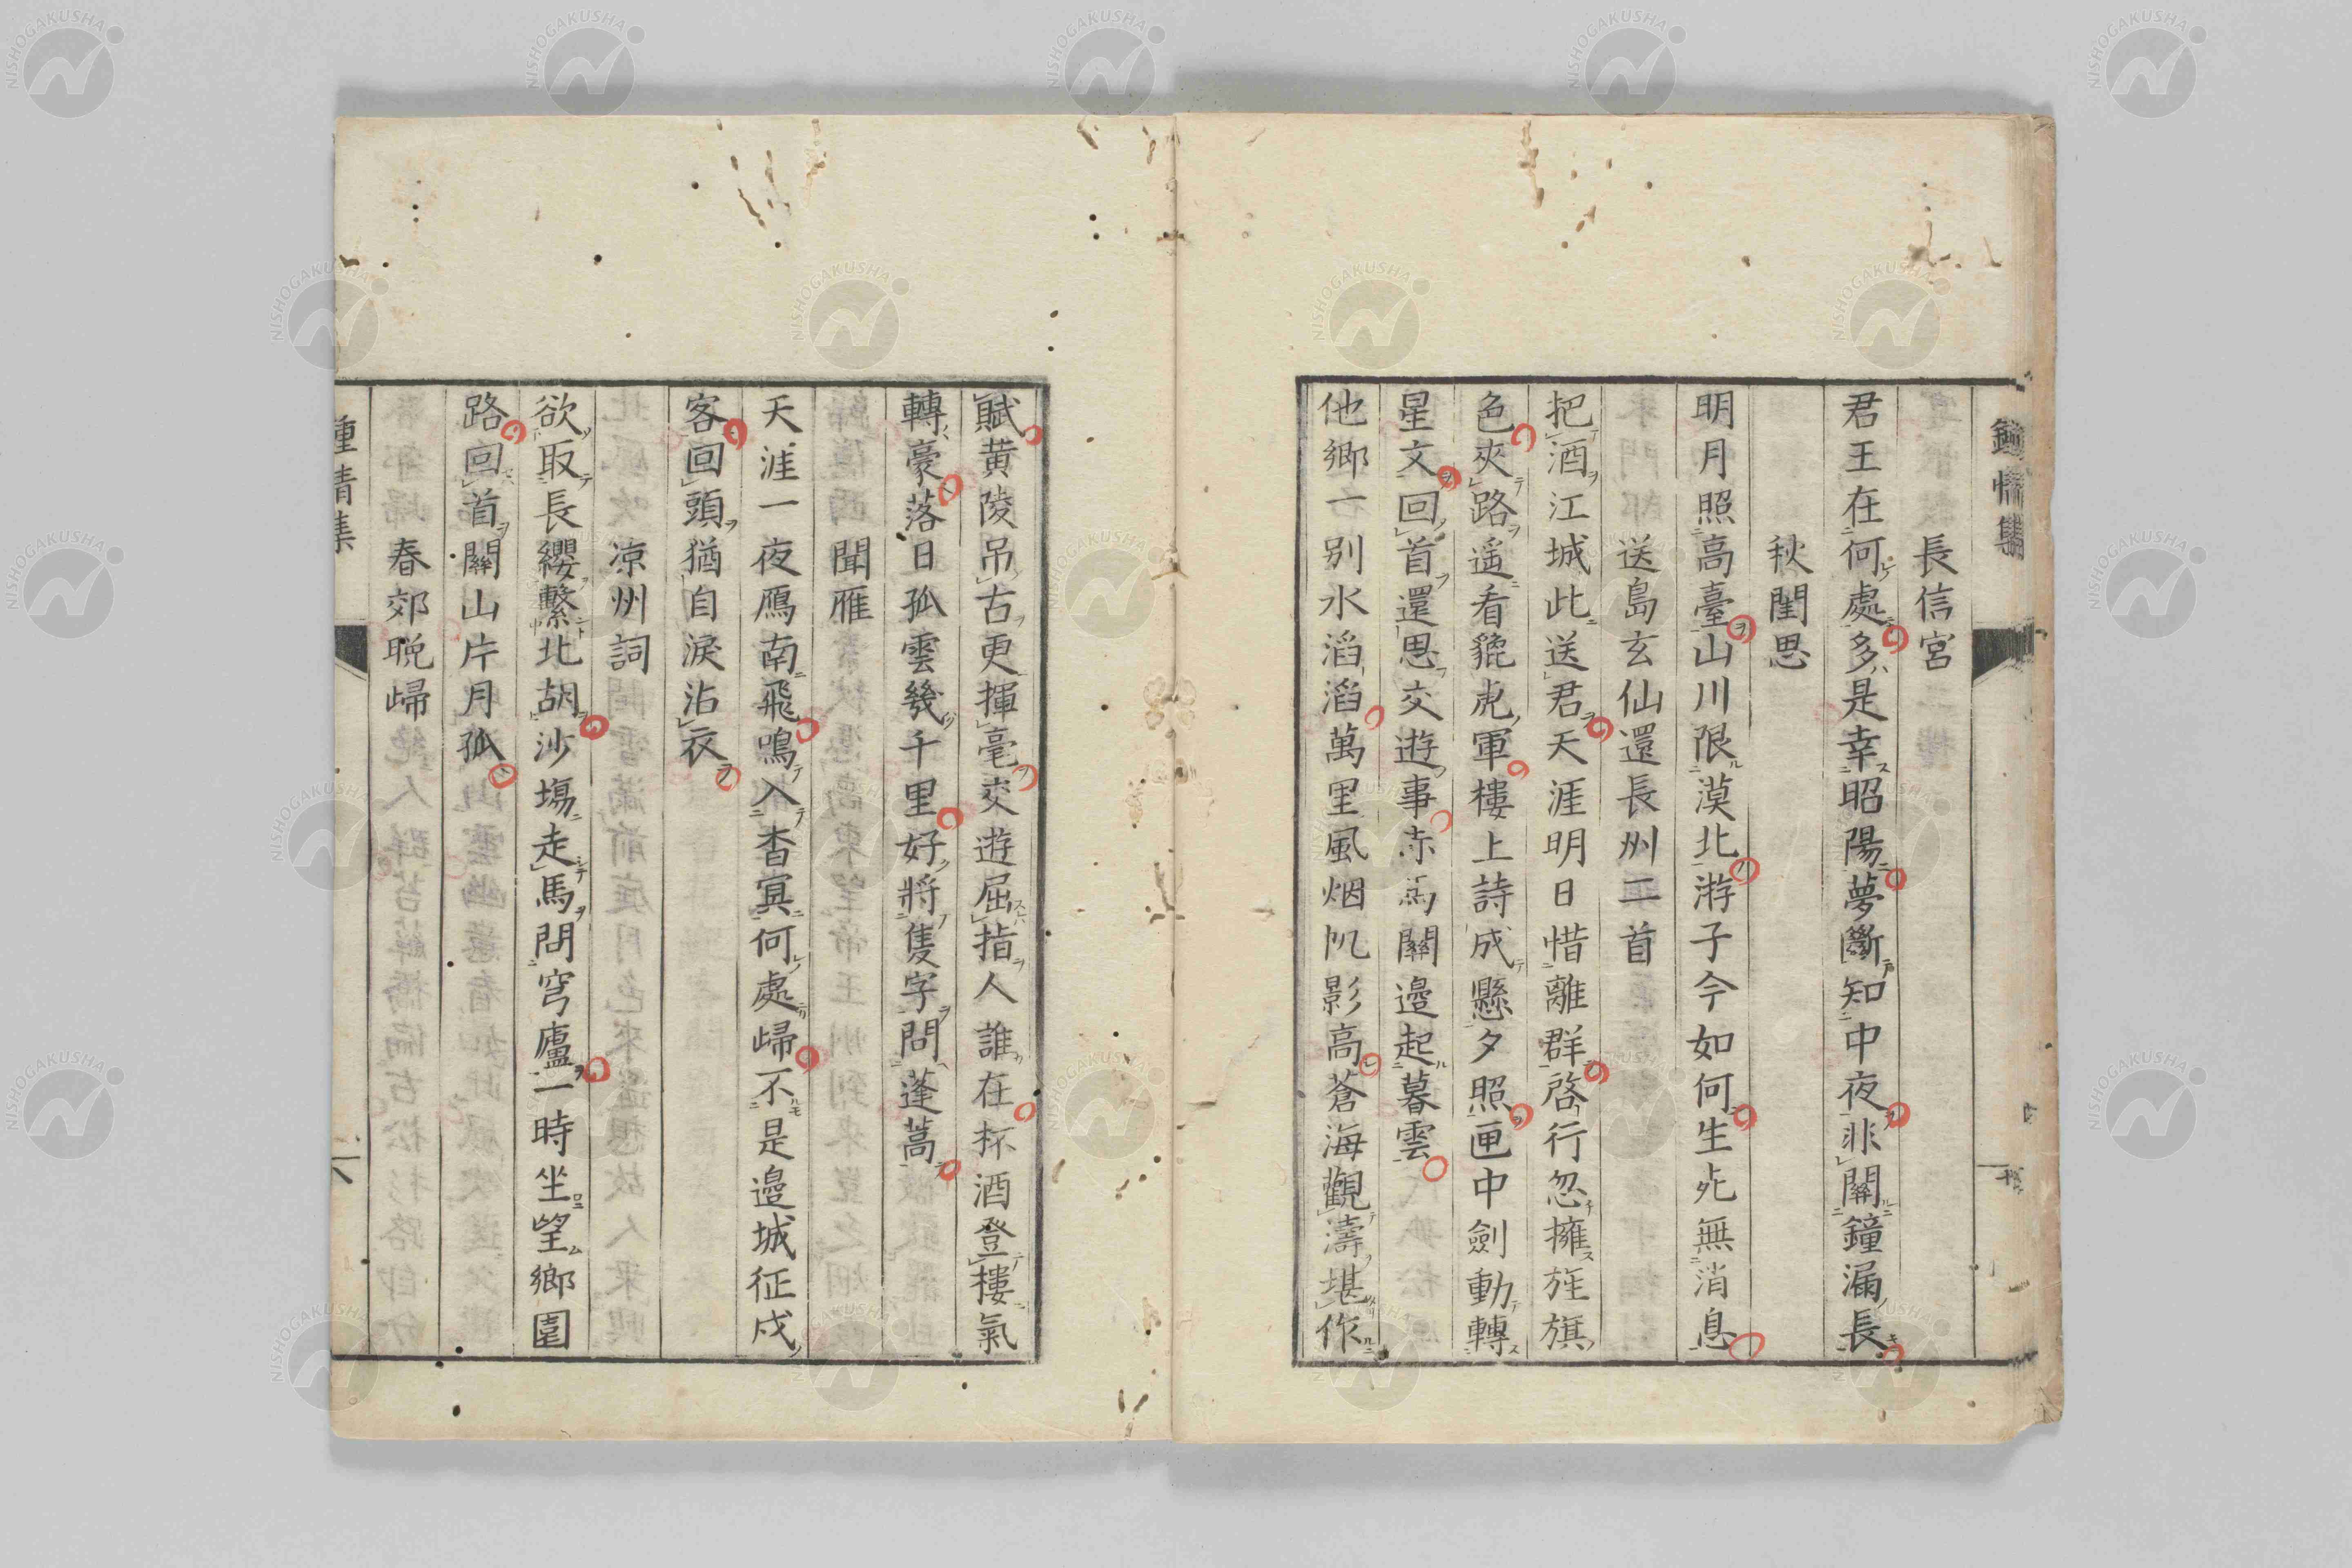 鍾情集
長信宮
君王在何處多是幸昭陽夢斷知中夜非關鐘漏長
秋閨思
明月照高臺山川限漠北游子今如何生死無消息
送島玄仙還長州二首
把酒江城此送君天涯明日惜離群啓行忽擁旌旗
色夾路遥看貔虎軍樓上詩成懸夕照匣中劍動轉
星文回首還思交遊事赤馬關邉起暮雲
他鄉一別水滔滔萬里風烟帆影高蒼海觀濤堪作
賦黄陵吊古更揮毫交遊屈指人誰在杯酒登樓氣
轉豪落日孤雲幾千里好將隻字問蓬蒿
聞雁
天涯一夜鴈南飛鳴入杳冥何處歸不是邉城征戍
客回頭猶自淚沾衣
凉州詞
欲取長纓繫北胡沙塲走馬問穹廬一時坐望鄉園
路回首關山片月孤
春郊晚歸
鍾情集
六
NISHOGAKUSHA